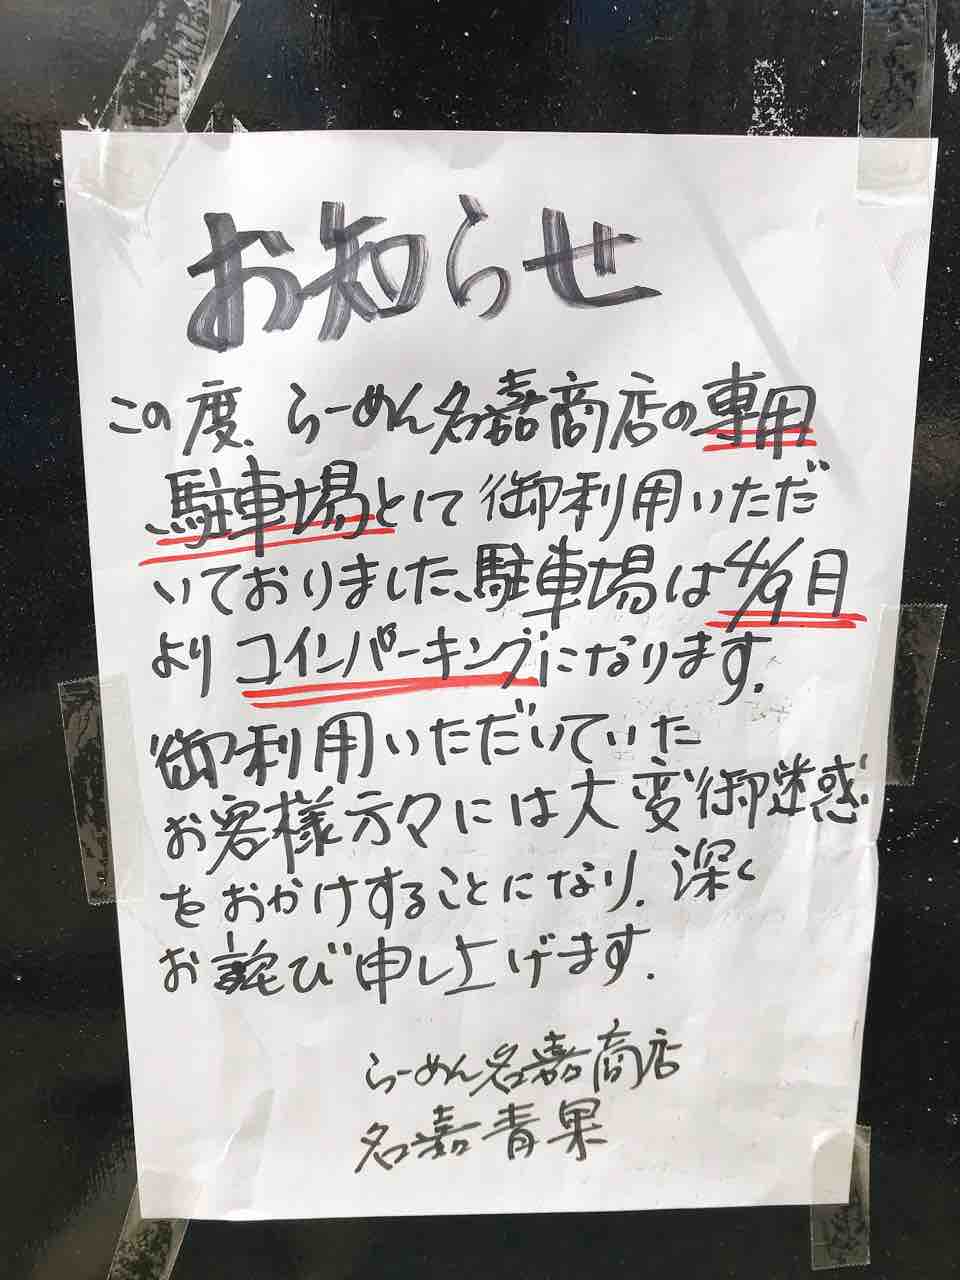 お知らせ
この度、らーめん名嘉商店の専用
駐車場として御利用いただ
いておりました、駐車場は4/9月
よりコインパーキングになります。
御利用いただいていた
お客様方々には大変御迷惑
をおかけすることになり、深く
お詫び申し上げます。
らーめん名嘉商店
名嘉青果